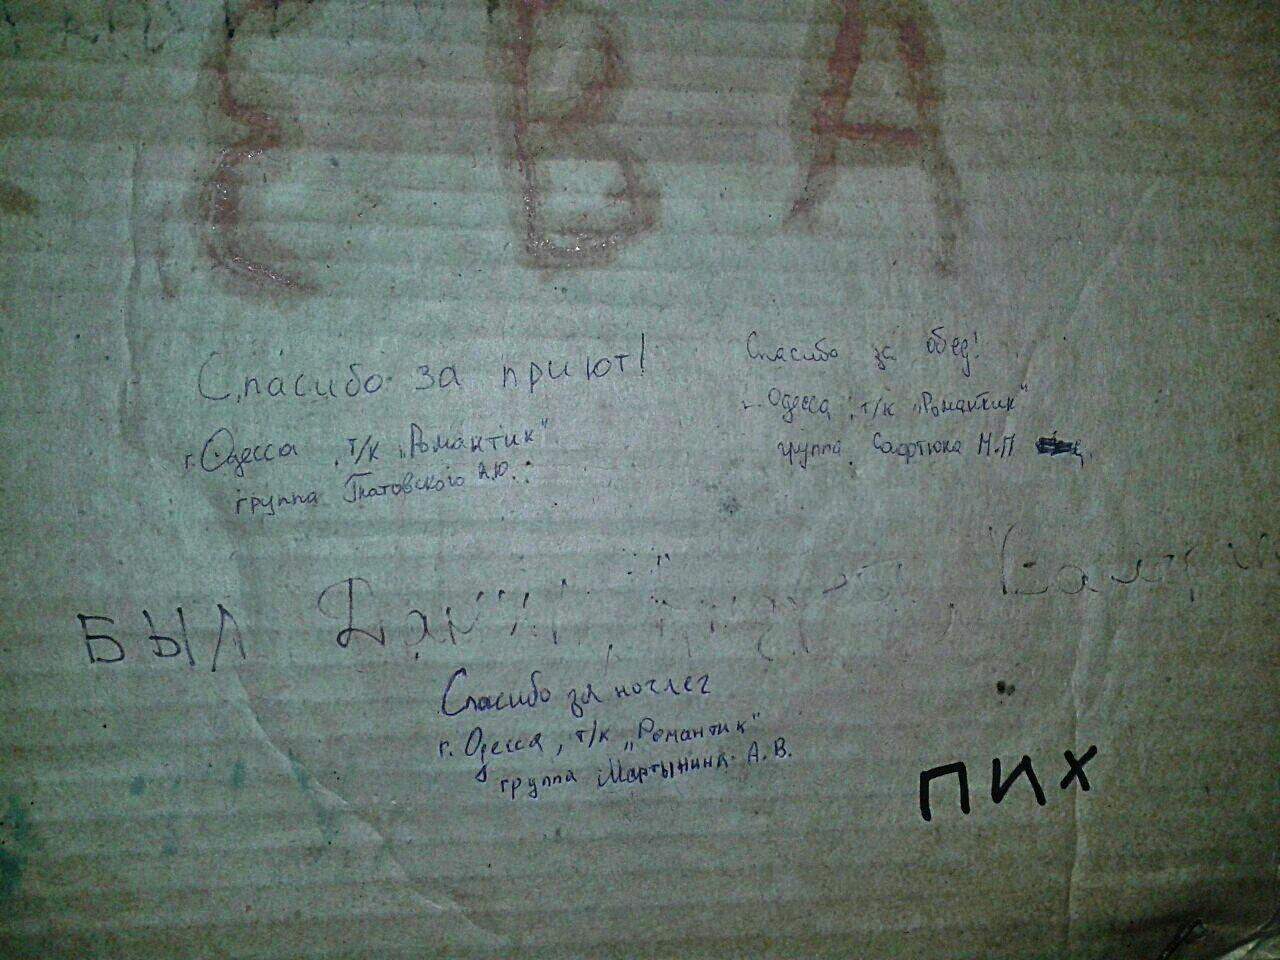 ЕВА
Спасибо за приют!
г. Одесса, т/к "Романтик"
группа Гнатовского А.Ю.
Спасибо за обед!
г. Одесса, т/к "Романтик"
группа М.П
БЫЛ
Спасибо за ночлег
г. Одесса, т/к "Романтик"
группа Мартынина А.В.
ПИХ